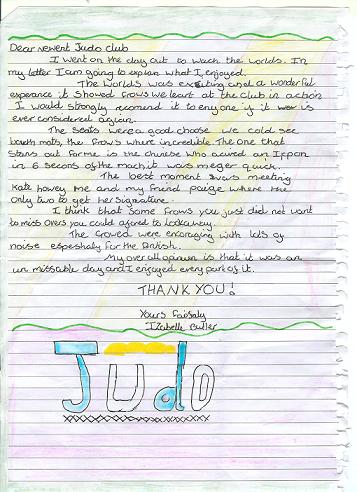 Dear Newent Judo Club
I went on the day out to wach the worlds. In
my letter I am going to explan what I enjoyed.
The worlds was exciting and a wonderful
experance it showed frows we leart at the club in action
I would strongly recomend it to enyone if it wer is
ever considered again.
The seats were a good choose we cold see
bouth mats. the frows where incredible. The one that
stans out for me is the chinese who acured an Ippon
in 6 seconds of the mach, it was meger quick.
The best moment was meeting
Kate howey me and my friend paige where the
only two to get her signature.
I think that some frows you just did not want
to miss overs you could afored to look away.
The crowed were encoraging with lots of
noise espeshaly for the British.
My over all opinun is that it was an
un missable day and I enjoyed every part of it.
THANK YOU!
Yours Faifsaly
Izabelle Butler
JUdO